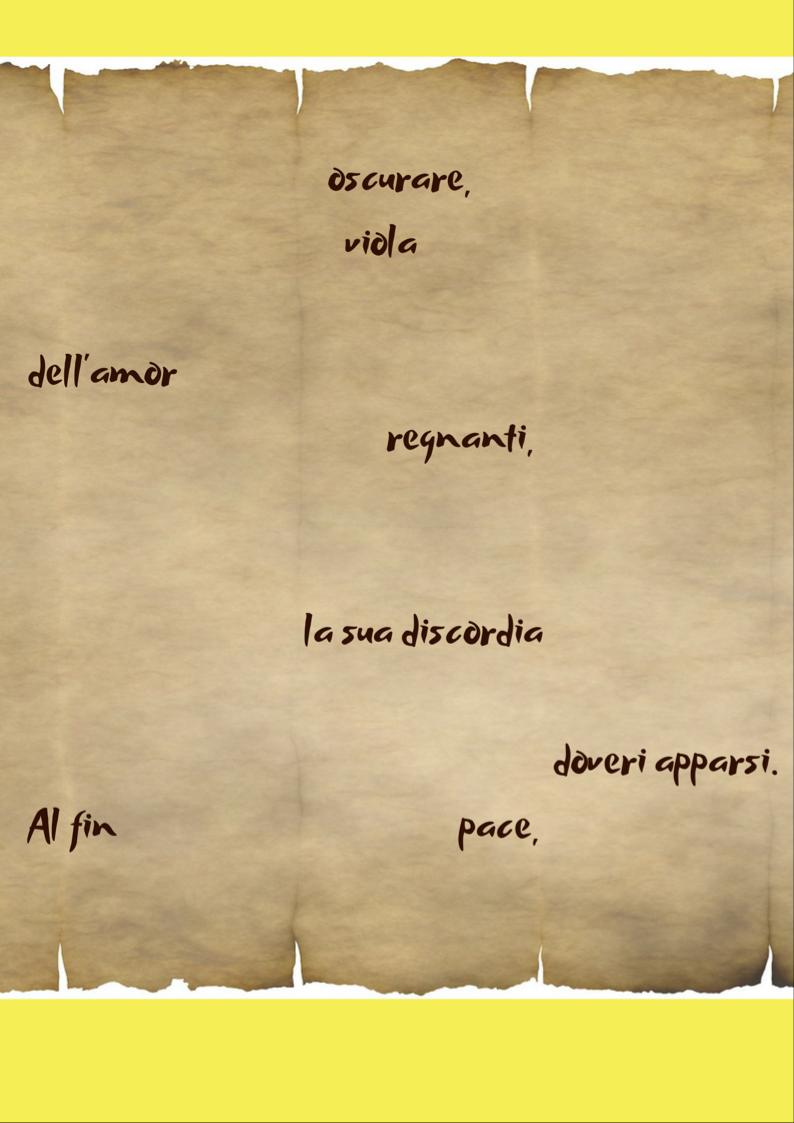 oscurare,
viola
dell'amor
regnanti,
la sua discordia
doveri apparsi.
Al fin pace,